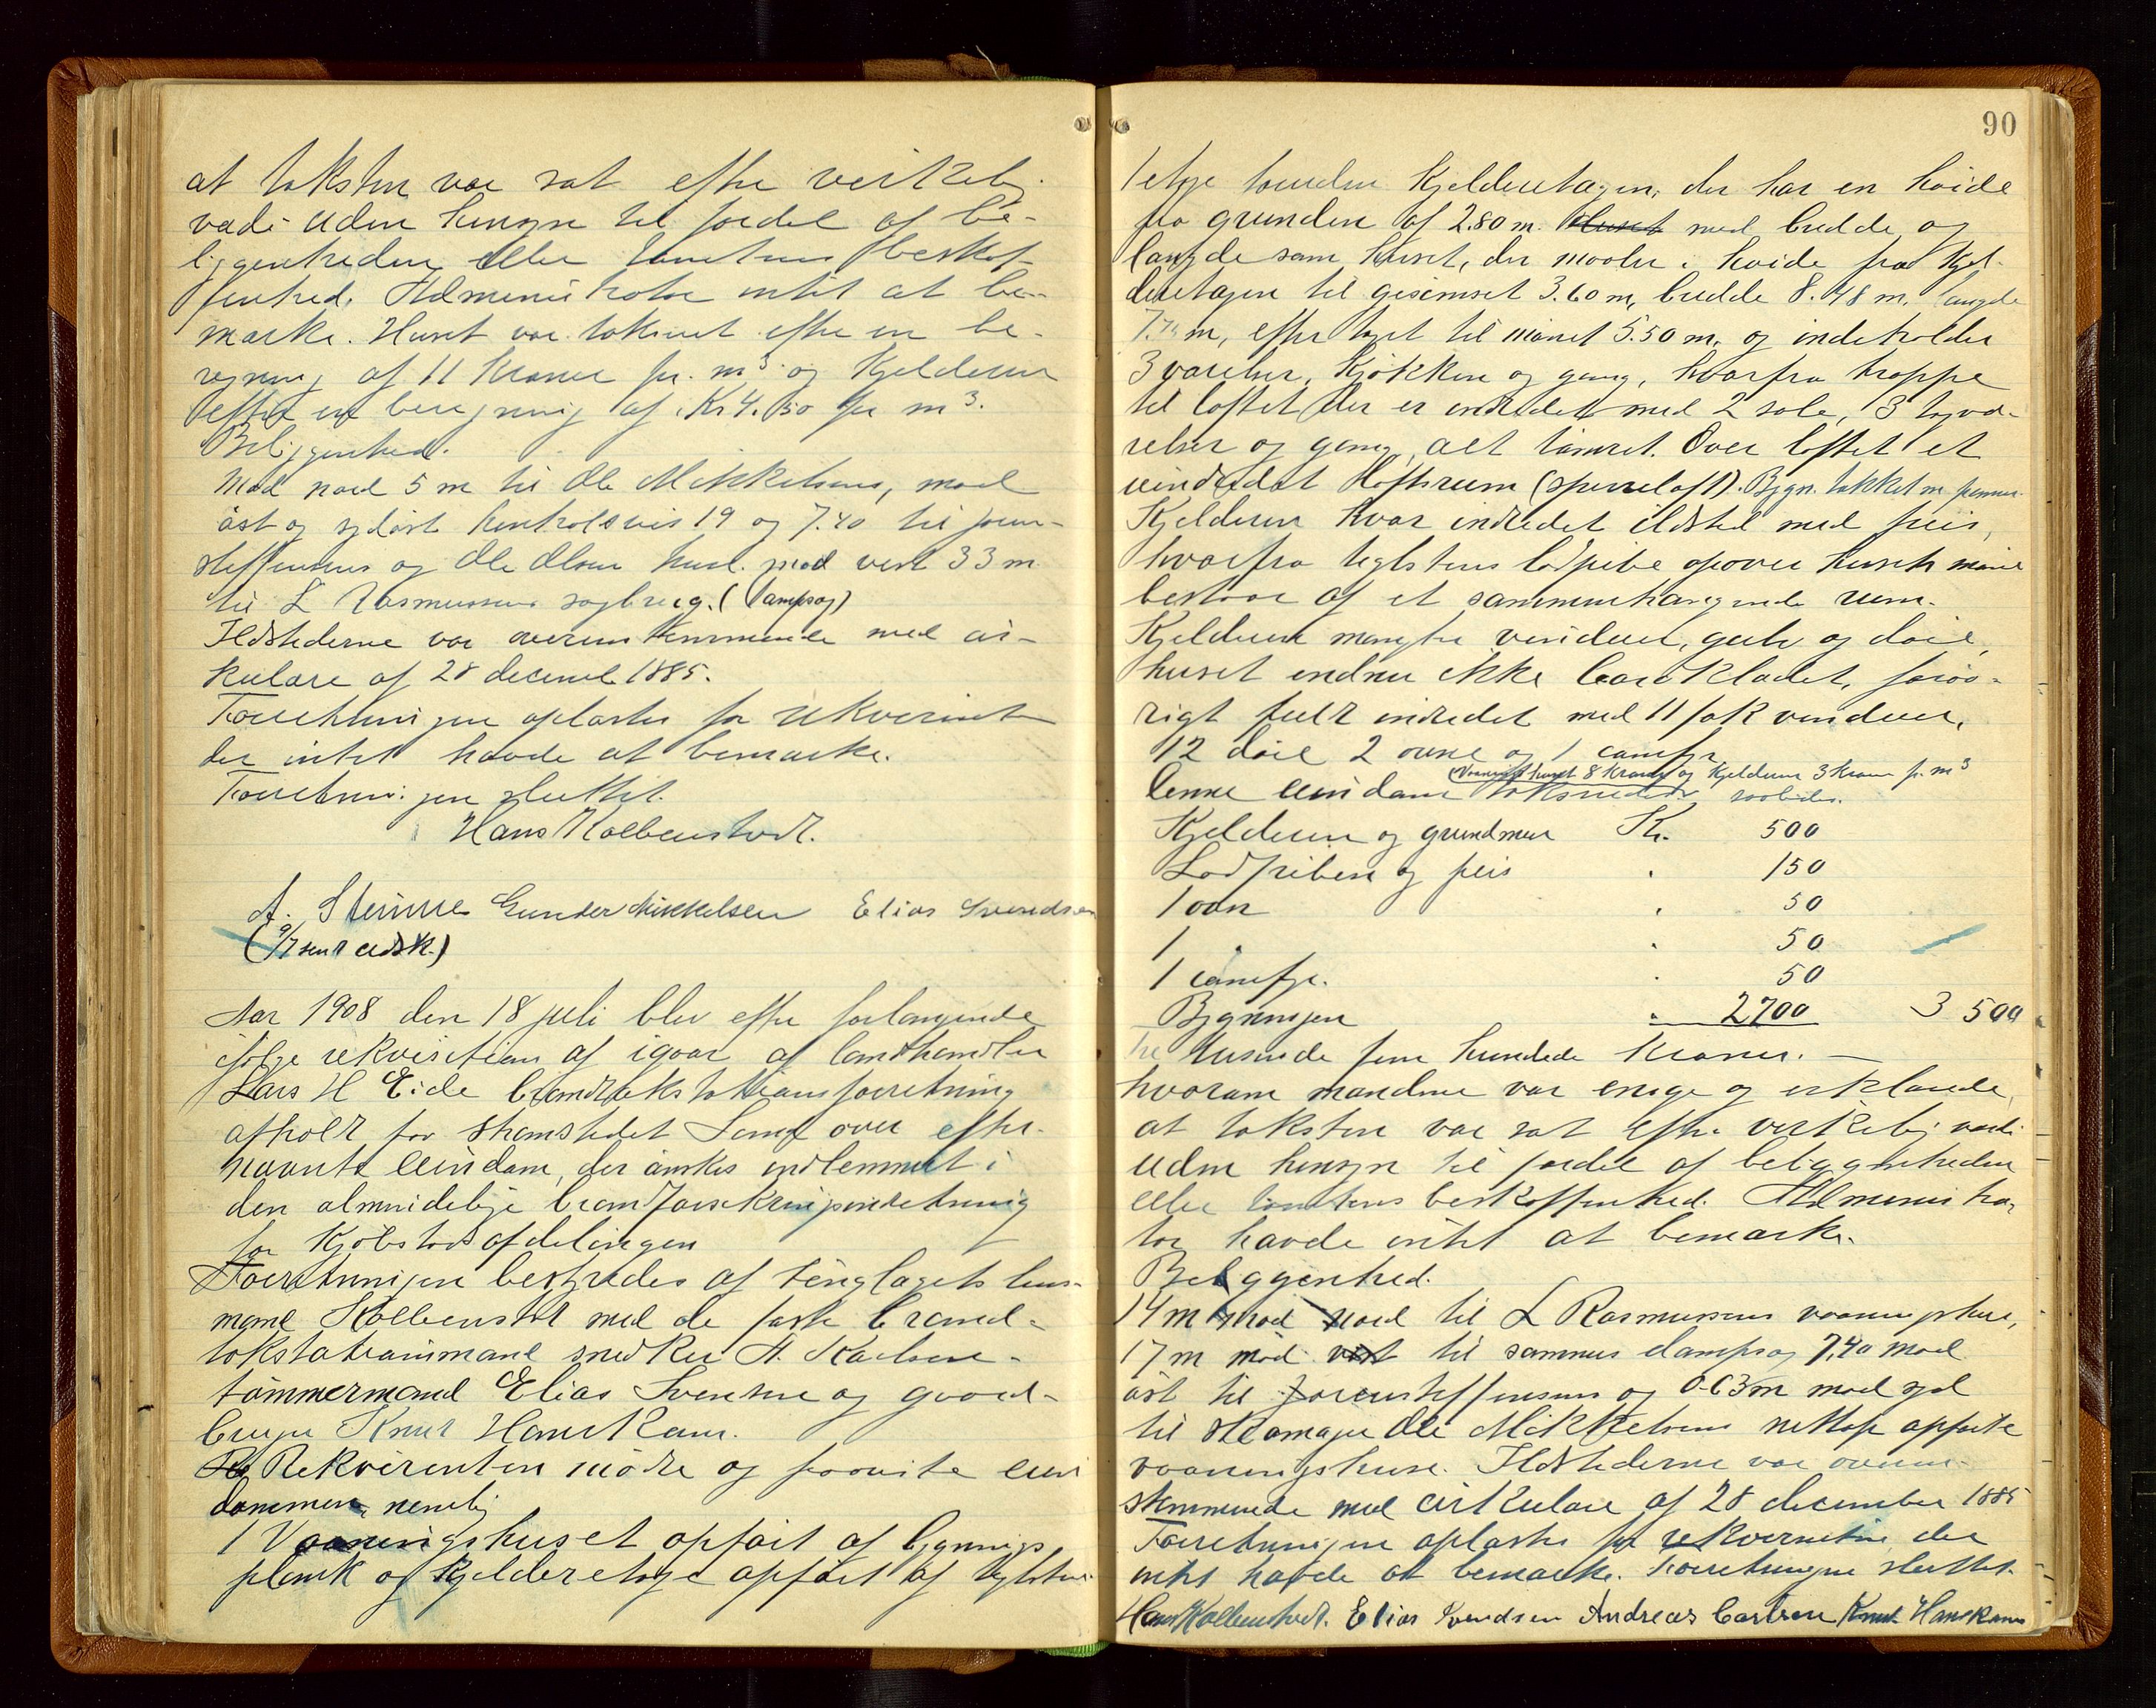 at taksten var sat efter virkelig
værdi uden hensyn til fordel af be-
liggenheden eller tomtens beskaf-
fenhed. Administrator intet at be-
mærke. Huset var takseret efter en be-
regning af 11 kroner pr. m³ og Kjelderen
efter en beregning af Kr 4.50 pr m³.
Beliggenhed.
Mod nord 5 m til Ole Mikkelsens, mod
øst og sydøst henholdsvis 19 og 7.40 til
Steffensens og Ole Olsens huse. mod vest 33 m
til L Rasmussens sagbrug. (Dampsag)
Ildstederne var overensstemmende med cir-
kulære af 28 decemb 1885.
Forretningen oplæstes for rekvirenten
der intet havde at bemærke.
Forretningen sluttet.
Hans Kolbenstvedt.
A. Steinne Gunder Mikkelsen Elias Svendsen
(9/7 sent udsk.)
Aar 1908 den 18 juli blev efter forlangende
ifølge rekvisition af igaar af landhandler
Lars H Eide brandtakstationsforretning
afholdt paa strandstedet over efter-
nævnte eiendom, der ønskes indlemmet i
den almindelige brandforsikringsindretning
for Kjøbstadsafdelingen
Forretningen bestyredes af tinglagets lens-
mand Kolbenstvedt med de faste brand-
takstationsmænd snedker A. Karlsen
tømmermand Elias Svensen og gaard-
bruger Knut Hauskam.
Rekvirenten mødte og paaviste eien
dommen, nemlig
1 Vaaningshuset opført af bygnings
plank og Kjelderetage opført af teglsten
90
1 etage foruden Kjelderetagen, der har en høide
fra grunden af 2.80 m. Huset med bredde og
længde som huset, der maaler i høide fra Kjel-
deretagen til gesimset 3.60 m, bredde 8.48 m. længde
m, efter taget til mønet 5.50 m. og indeholder
3 værelser, Kjøkken og gang, hvorfra trappe
til loftet der er indredet med 2 sale, 3 tagvæ-
relser og gang, alt tømret. Over loftet et
uindredet loftsrum (sperreloft). Bygn. tækket m. panner.
Kjelderen hvor indredet ildsted med peis,
hvorfra teglstens lodpibe opover husets møne
bestaar af et sammenhængende rum.
Kjelderen mangler vinduer, gulv og døre,
huset endnu ikke bordklædet, forøv-
rigt fuldt indredet med 11 fak vinduer,
12 døre 2 ovne og 1 comfyr
(Vaaningshuset 8 kroner og Kjelderen 3 kroner pr. m³
Denne eiendom taksertes saaledes.
Kjelderen og grundmur Kr. 500
Lodpiben og peis " 150
1 ovn " 50
1 " 50
1 comfyr. " 50
Bygningen " 2700 3 500
tre tusinde fem hundrede kroner. —
hvorom mændene var enige og erklærede,
at taksten var sat efter virkelig værdi
uden hensyn til fordel af beliggenheden
eller tomtens beskaffenhed. Administra-
tor havde intet at bemærke.
Beliggenhed.
14 m mod nord til L Rasmussens vaaningshus,
17 m mod vest til sammes dampsag 7,40 mod
øst til Steffensens og 0.63 m mod syd
til skomager Ole Mikkelsens nettop opførte
vaaningshuse. Ildstederne var overens-
stemmende med cirkulære af 28 december 1885
Forretningen oplæstes for rekvirenten der
intet havde at bemærke. Forretningen sluttet.
Hans Kolbenstvedt. Elias Svendsen Andreas Carlsen Knut Hauskam